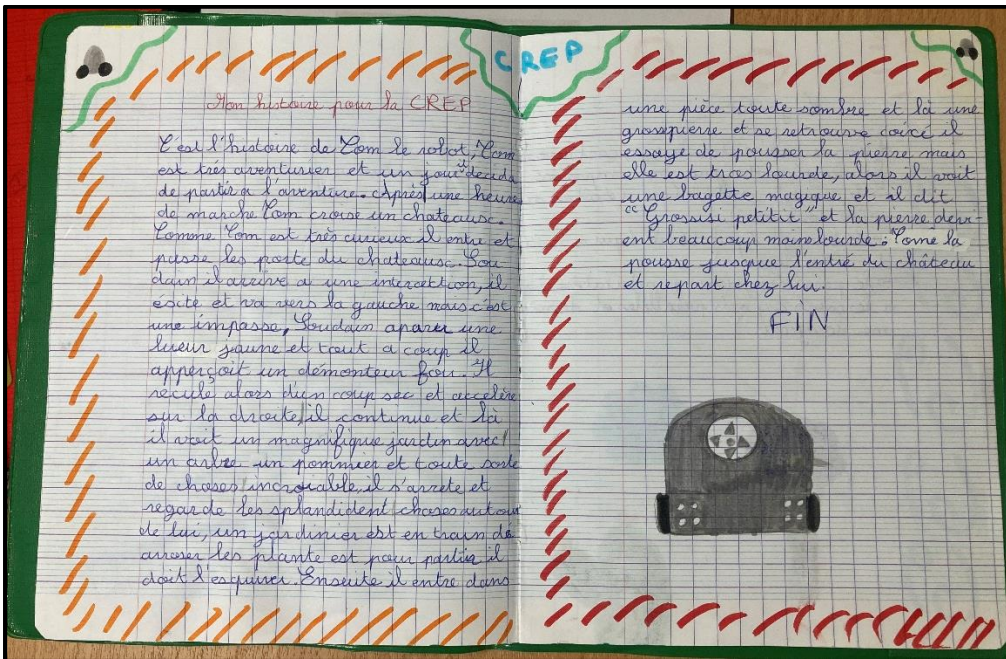 CREP
Mon histoire pour la CREP
C'est l'histoire de Tom le robot, Tom
est très aventurier et un jour il décida
de partir a l'aventure. Après une heure
de marche Tom croise un chateausc.
Comme Tom est très curieux il entre et
passe les porte du chateausc. Sou
dain il arrive a une intercettion, il
ésite et va vers la gauche mais c'est
une impasse, Soudain aparu une
lueur jaune et tout a coup il
apperçoit un démonteur fou. Il
recule alors d'un coup sec et accelère
sur la droite, il continue et là
il voit un magnifique jardin avec
un arbre un pommier et toute sorte
de choses incroiable, il s'arrete et
regarde les splandident choses autour
de lui, un jardinier est en train de
arroser les plante est pour partir il
doit l'esquiver. Ensuite il entre dans
une pièce toute sombre et là une
grossepierre et se retrouve coincé il
essaye de pousser la pierre mais
elle est tros lourde, alors il voit
une bagette magique et il dit
"Grossisi petitit" et la pierre devi-
ent beaucoup moins lourde. Tom la
pousse jusque l'entré du château
et repart chez lui.
FIN